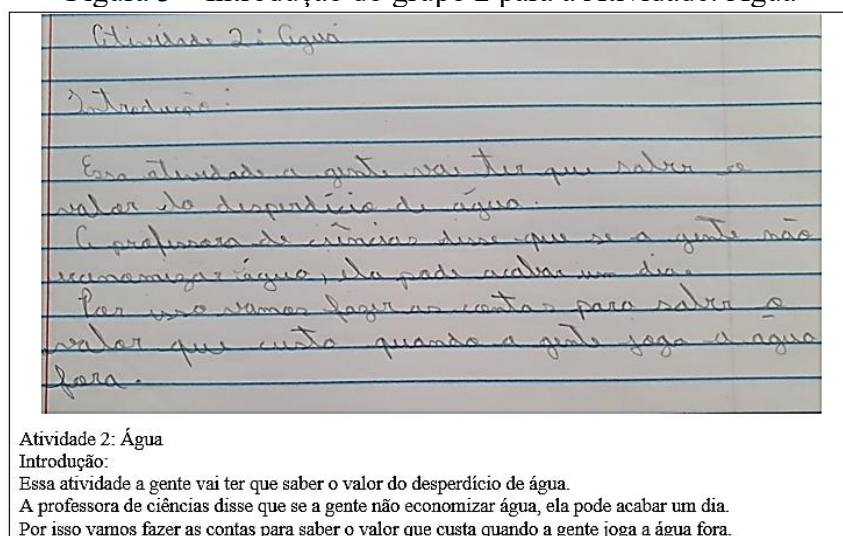 Introdução do grupo 2 para a Atividade: Água
Atividade 2: Água
Introdução:
Essa atividade a gente vai ter que saber o
valor do desperdício de água.
A professora de ciências disse que se a gente não
economizar água, ela pode acabar um dia.
Por isso vamos fazer as contas para saber o
valor que custa quando a gente joga a água
fora.
Atividade 2: Água
Introdução:
Essa atividade a gente vai ter que saber o valor do desperdício de água.
A professora de ciências disse que se a gente não economizar água, ela pode acabar um dia.
Por isso vamos fazer as contas para saber o valor que custa quando a gente joga a água fora.